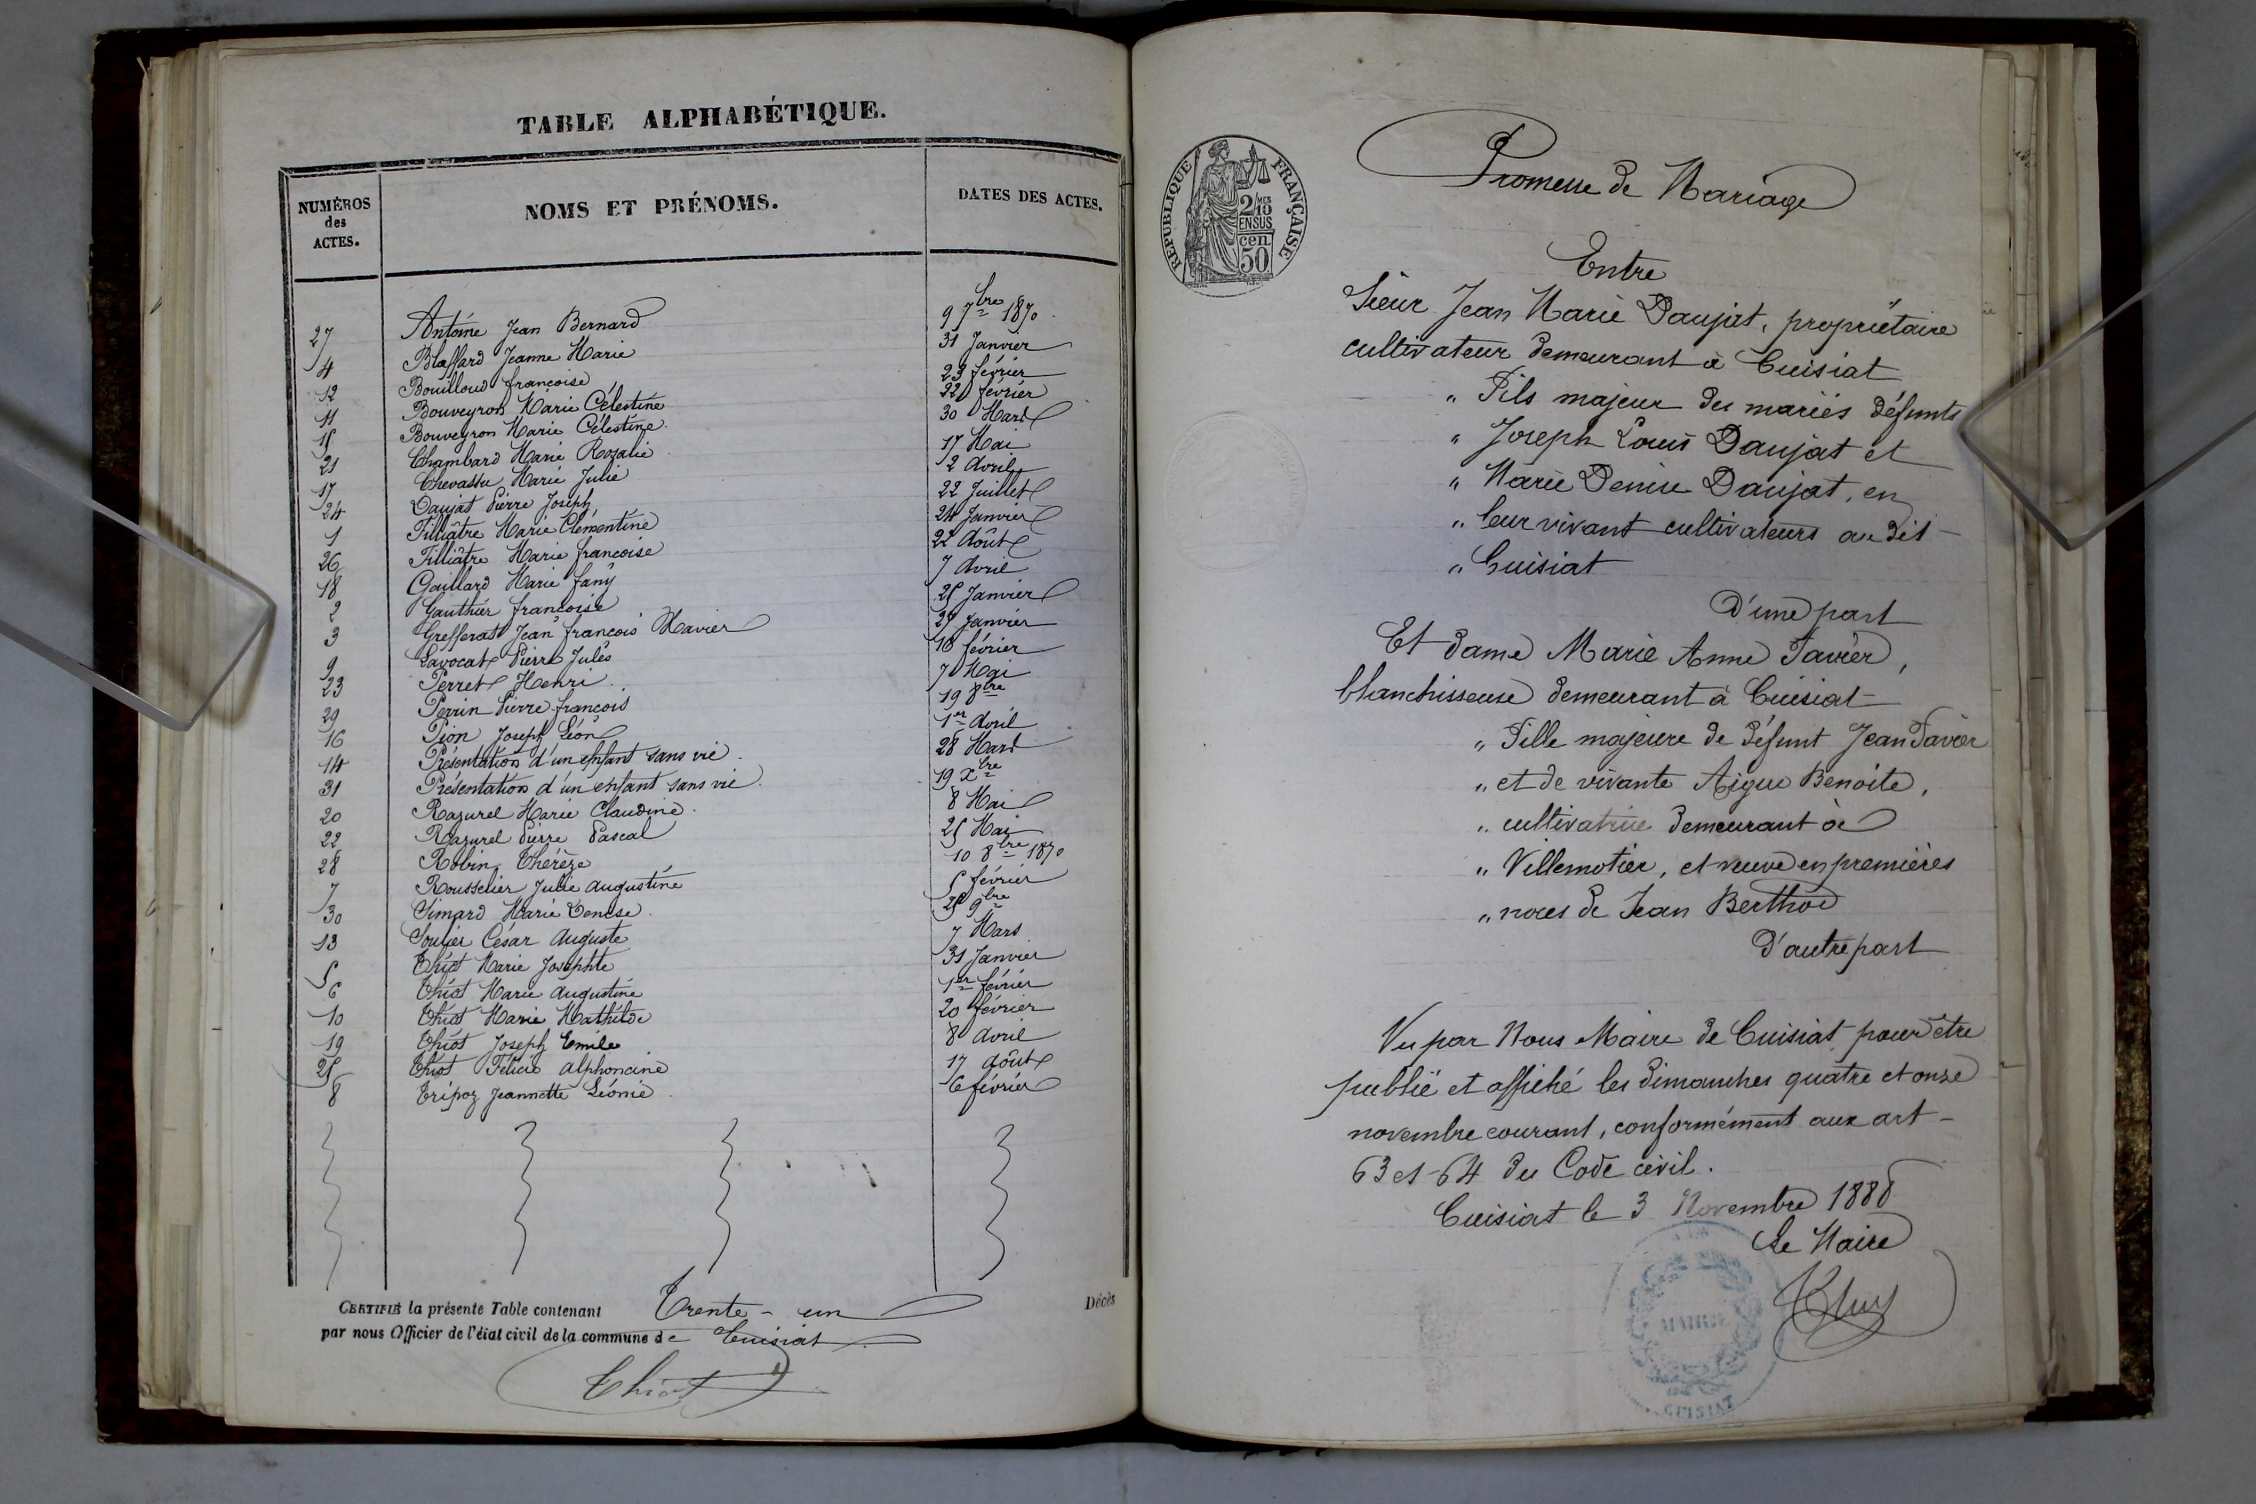 TABLE ALPHABÉTIQUE.
NUMÉROS des ACTES.
NOMS ET PRÉNOMS.
DATES DES ACTES.
27 Antoine Jean Bernard 9 7bre 1870
4 Blaffard Jeanne Marie 31 Janvier
12 Bouilloud françoise 23 février
11 Bouveyron Marie Célestine 22 février
15 Bouveyron Marie Célestine 30 Mars
21 Chambard Marie Rozalie 17 Mai
17 Chevassu Marie Julie 2 avril
24 Daujat Pierre Joseph 22 Juillet
1 Filliâtre Marie Clémentine 24 Janvier
26 Filliâtre Marie françoise 22 Août
18 Gaillard Marie fany 7 avril
2 Gauthier françoise 25 Janvier
3 Grefferat Jean françois Xavier 29 Janvier
9 Lavocat Pierre Jules 18 février
23 Perret Henri 7 Mai
29 Perrin Pierre françois 19 8bre
16 Pion Joseph Léon 1er Avril
14 Présentation d'un enfant sans vie 28 Mars
31 Présentation d'un enfant sans vie 19 Xbre
20 Razurel Marie Claudine 8 Mai
22 Razurel Pierre Pascal 25 Mai
28 Robin Thérèze 10 8bre 1870
7 Rousselier Julie augustine 5 février
30 Simard Marie Denise 25 9bre
13 Soulier César Auguste 7 Mars
5 Thiot Marie Josephte 31 Janvier
6 Thiot Marie augustine 1er février
10 Thiot Marie Mathilde 20 février
19 Thiot Joseph Emile 8 avril
25 Thiot Félicie alphonsine 17 août
8 Tripoz Jeannette Léonie 6 février
CERTIFIÉ la présente Table contenant Trente-un Décès
par nous Officier de l'état civil de la commune de Cuisiat
Thiot
RÉPUBLIQUE FRANÇAISE
2/10 MES
EN SUS
50 cen
Promesse de Mariage
Entre
Sieur Jean Marie Daujat, propriétaire
cultivateur demeurant à Cuisiat
" Fils majeur des mariés défunts
" Joseph Louis Daujat et
" Marie Denise Daujat, en
" leur vivant cultivateurs au dit
" Cuisiat
D'une part
Et dame Marie Anne Favier,
blanchisseuse demeurant à Cuisiat
" Fille majeure de défunt Jean Favier
" et de vivante Aigue Benoite,
" cultivatrice demeurant à
" Villemotier, et veuve en premières
" noces de Jean Berthod
D'autre part
Vu par Nous Maire de Cuisiat pour être
publié et affiché les dimanches quatre et onze
novembre courant, conformément aux art
63 et 64 du Code civil.
Cuisiat le 3 Novembre 1888
Le Maire
MAIRIE
CUISIAT